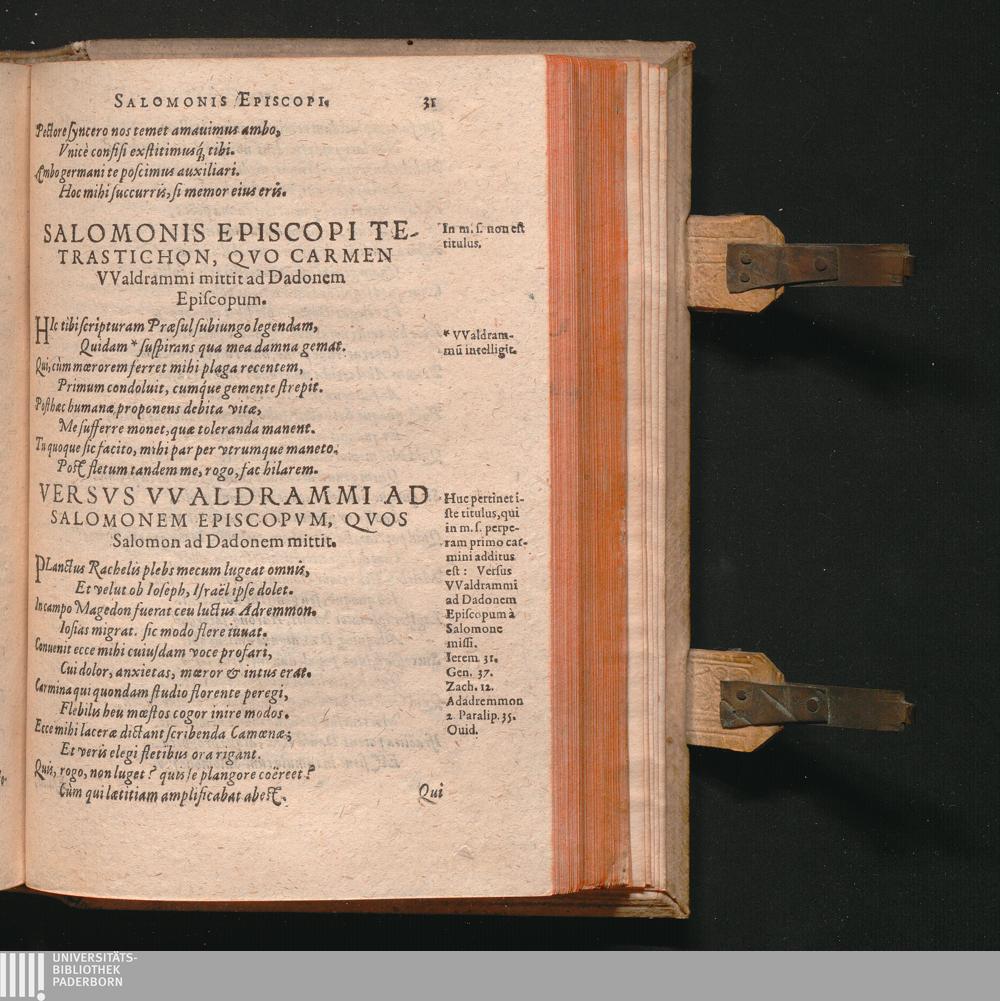 SALOMONIS EPISCOPI. 31
Pectore syncero nos temet amauimus ambo,
Vnicè confisi exstitimusq́; tibi.
Ambo germani te poscimus auxiliari.
Hoc mihi succurris, si memor eius eris.
SALOMONIS EPISCOPI TE-
TRASTICHON, QVO CARMEN
VValdrammi mittit ad Dadonem
Episcopum.
In m. s. non est
titulus.
HIc tibi scripturam Præsul subiungo legendam,
Quidam * suspirans qua mea damna gemat.
* VValdram-
mũ intelligit.
Qui, cùm mœrorem ferret mihi plaga recentem,
Primum condoluit, cumq́ue gemente strepit.
Posthæc humanæ proponens debita vitæ,
Me sufferre monet, quæ toleranda manent.
Tu quoque sic facito, mihi par per vtrumque maneto:
Post fletum tandem me, rogo, fac hilarem.
VERSVS VVALDRAMMI AD
SALOMONEM EPISCOPVM, QVOS
Salomon ad Dadonem mittit.
PLanctus Rachelis plebs mecum lugeat omnis,
Et velut ob Ioseph, Israël ipse dolet.
In campo Magedon fuerat ceu luctus Adremmon.
Iosias migrat. sic modo flere iuuat.
Conuenit ecce mihi cuiusdam voce profari,
Cui dolor, anxietas, mœror & intus erat.
Carmina qui quondam studio florente peregi,
Flebilis heu mœstos cogor inire modos.
Ecce mihi laceræ dictant scribenda Camœnæ;
Et veris elegi fletibus ora rigant.
Quis, rogo, non luget? quis se plangore coërcet?
Cùm qui lætitiam amplificabat abest.
Huc pertinet i-
ste titulus, qui
in m. s. perpe-
ram primo car-
mini additus
est: Versus
VValdrammi
ad Dadonem
Episcopum à
Salomone
missi.
Ierem 31.
Gen. 37.
Zach. 12.
Adadremmon
2. Paralip. 35.
Ouid.
Qui
UNIVERSITÄTS-
BIBLIOTHEK
PADERBORN